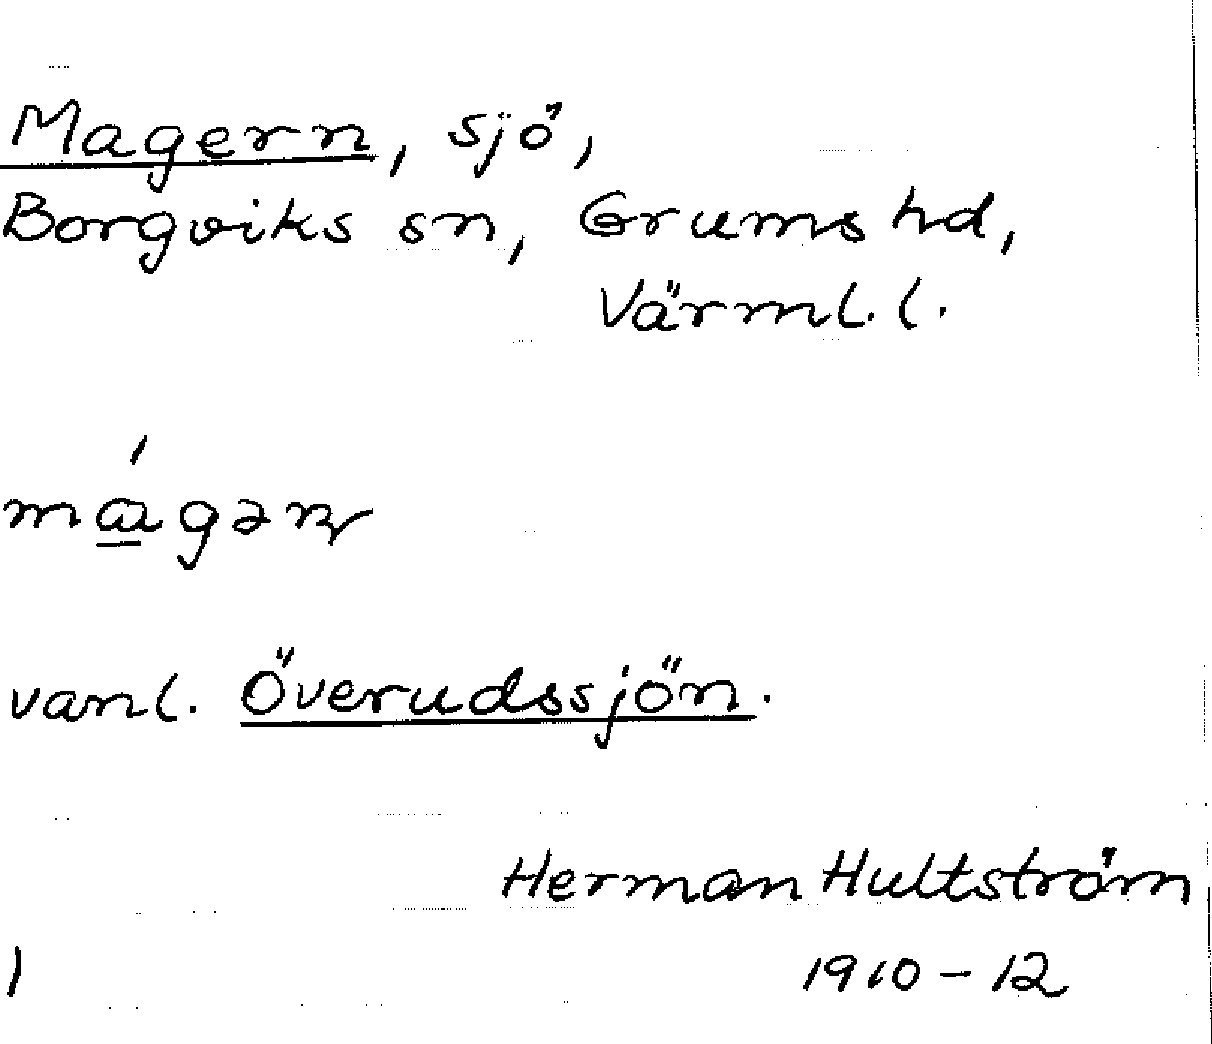 Magern, sjö,
Borgviks sn, Grums hd,
Värml. l.
mágəɳ
vanl. Överudssjön.
Herman Hultström
1) 1910-12